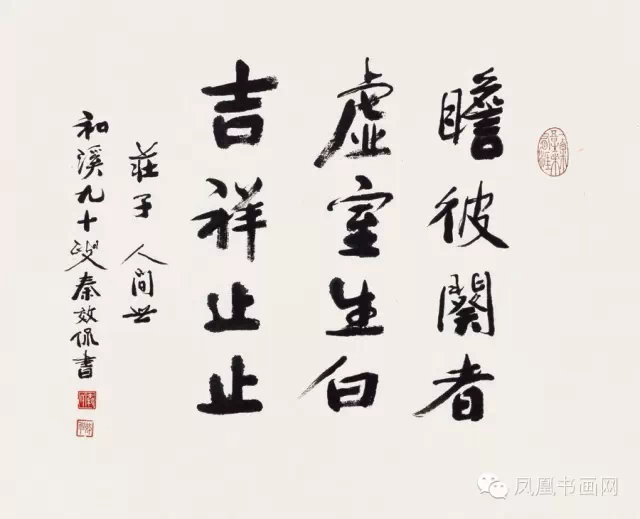 瞻彼闋者
虚室生白
吉祥止止
莊子 人间世
和溪九十叟秦效侃書
凤凰书画网